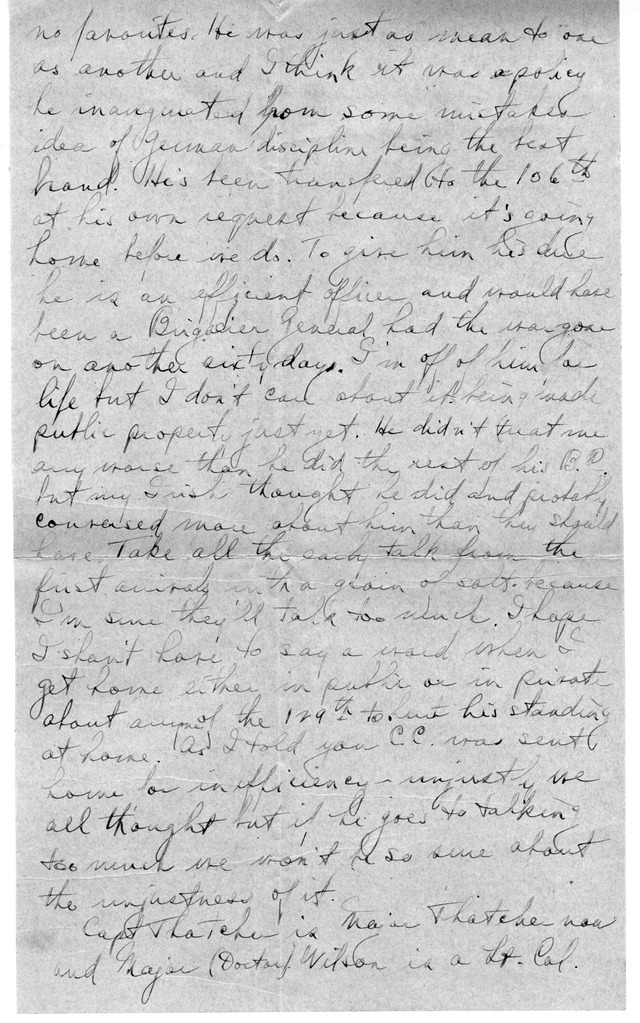 no favorites. He was just as mean to one
as another and I think it was a policy
he inaugurated from some mistaken
idea of German discipline being the best
brand. He's been transfered to the 106th
at his own request because it's going
home before we do. To give him his due
he is an efficient officer and would have
been a Brigadier General had the war gone
on another sixty days. I'm off of him for
life but I don't care about it being made
public property just yet. He didn't treat me
any worse than he did the rest of his B.C.
but my Irish thought he did and probably
conversed more about him than they should
have. Take all the early talk from the
first arrivals with a grain of salt because
I'm sure they'll talk too much. I hope
I shan't have to say a word when I
get home either in public or in private
about any of the 129th to hurt his standing
at home. (As I told you C.C. was sent
home for inefficiency - unjustly we
all thought but if he goes to talking
too much we won't be so sure about
the unjustness of it.
Capt Thatcher is Major Thatcher now
and Major (Doctor) Wilson is a Lt. Col.